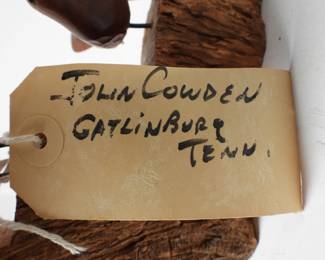 John Cowden
Gatlinburg
Tenn.